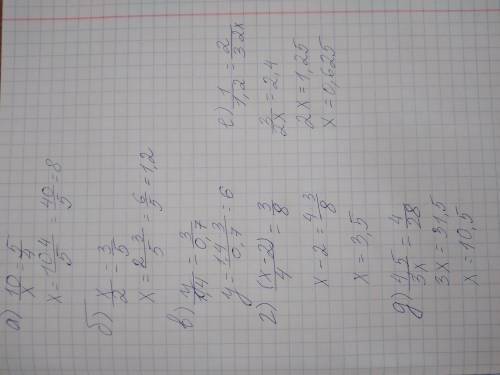 а) 10/x = 5/4
x = 10·4/5 = 40/5 = 8
б) x/2 = 3/5
x = 2·3/5 = 6/5 = 1,2
в) y/1,4 = 3/0,7
y = 1,4·3/0,7 = 6
г) (x-2)/4 = 3/8
x-2 = 4·3/8
x = 3,5
д) 4,5/3x = 4/28
3x = 31,5
x = 10,5
е) 1/1,2 = 2/3 2x
3/2x = 2,4
2x = 1,25
x = 0,625